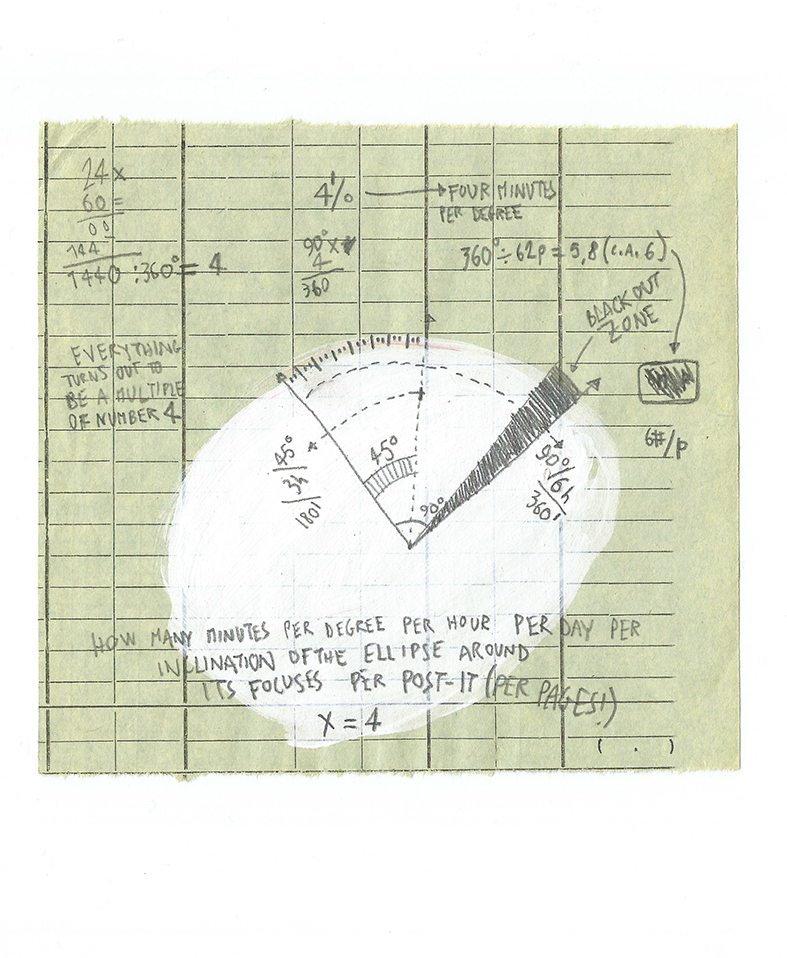 24x
60=
00
144
1440 :360°= 4
4'/° → FOUR MINUTES
PER DEGREE
90°x
4
360
360° ÷ 62p = 5,8 (C.A. 6)
BLACK OUT
ZONE
6#/p
EVERYTHING
TURNS OUT TO
BE A MULTIPLE
OF NUMBER 4
45°
3h
180'
45°
90°
90°/6h
360'
HOW MANY MINUTES PER DEGREE PER HOUR PER DAY PER
INCLINATION OF THE ELLIPSE AROUND
ITS FOCUSES PER POST-IT (PER PAGES!)
X = 4
( . )